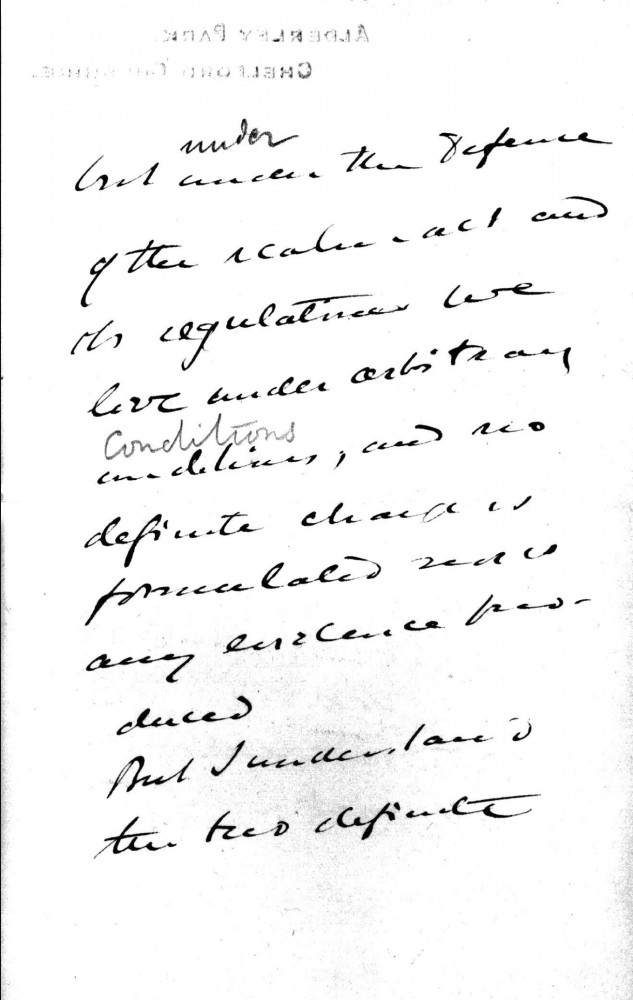 ALDERLEY PARK.
CHELFORD, CHESHIRE.
under
but under the Defence
of the realm act and
its regulations we
live under arbitrary
Conditions
conditions, and no
definite charge is
formulated nor is
any evidence pro-
duced
But I understand
the two definite